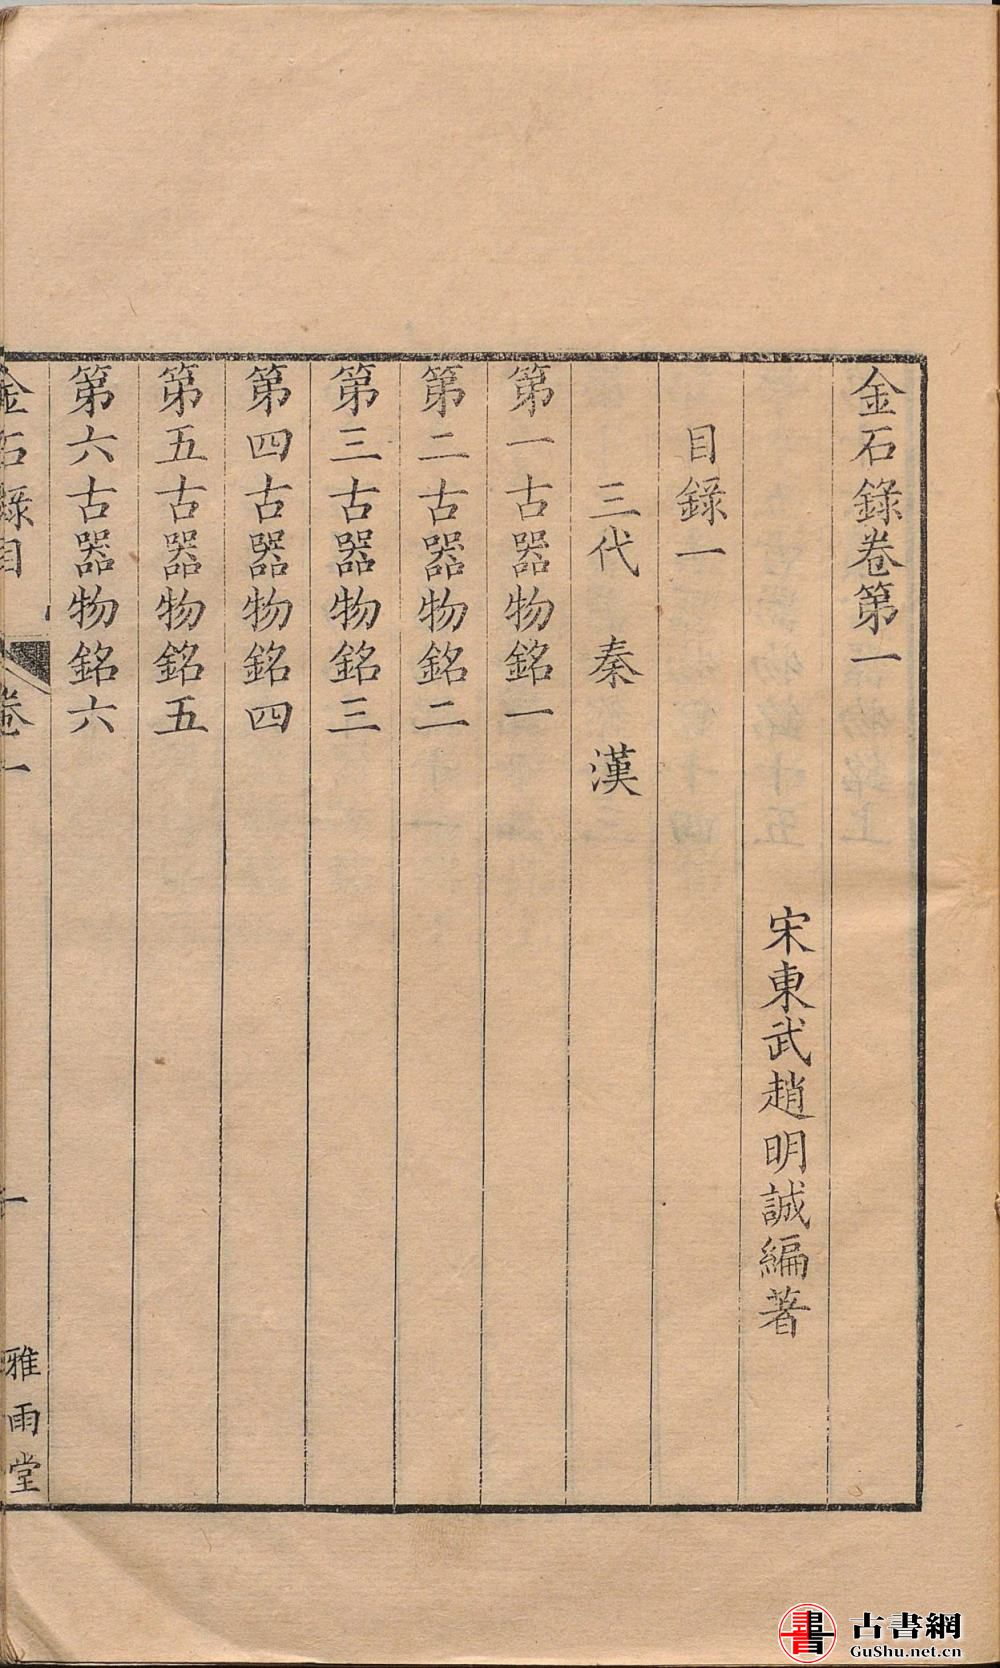 金石錄卷第一
宋東武趙明誠編著
目錄一
三代　秦　漢
第一古器物銘一
第二古器物銘二
第三古器物銘三
第四古器物銘四
第五古器物銘五
第六古器物銘六
金石錄目　卷一　一　雅雨堂
書
古書網
GuShu.net.cn